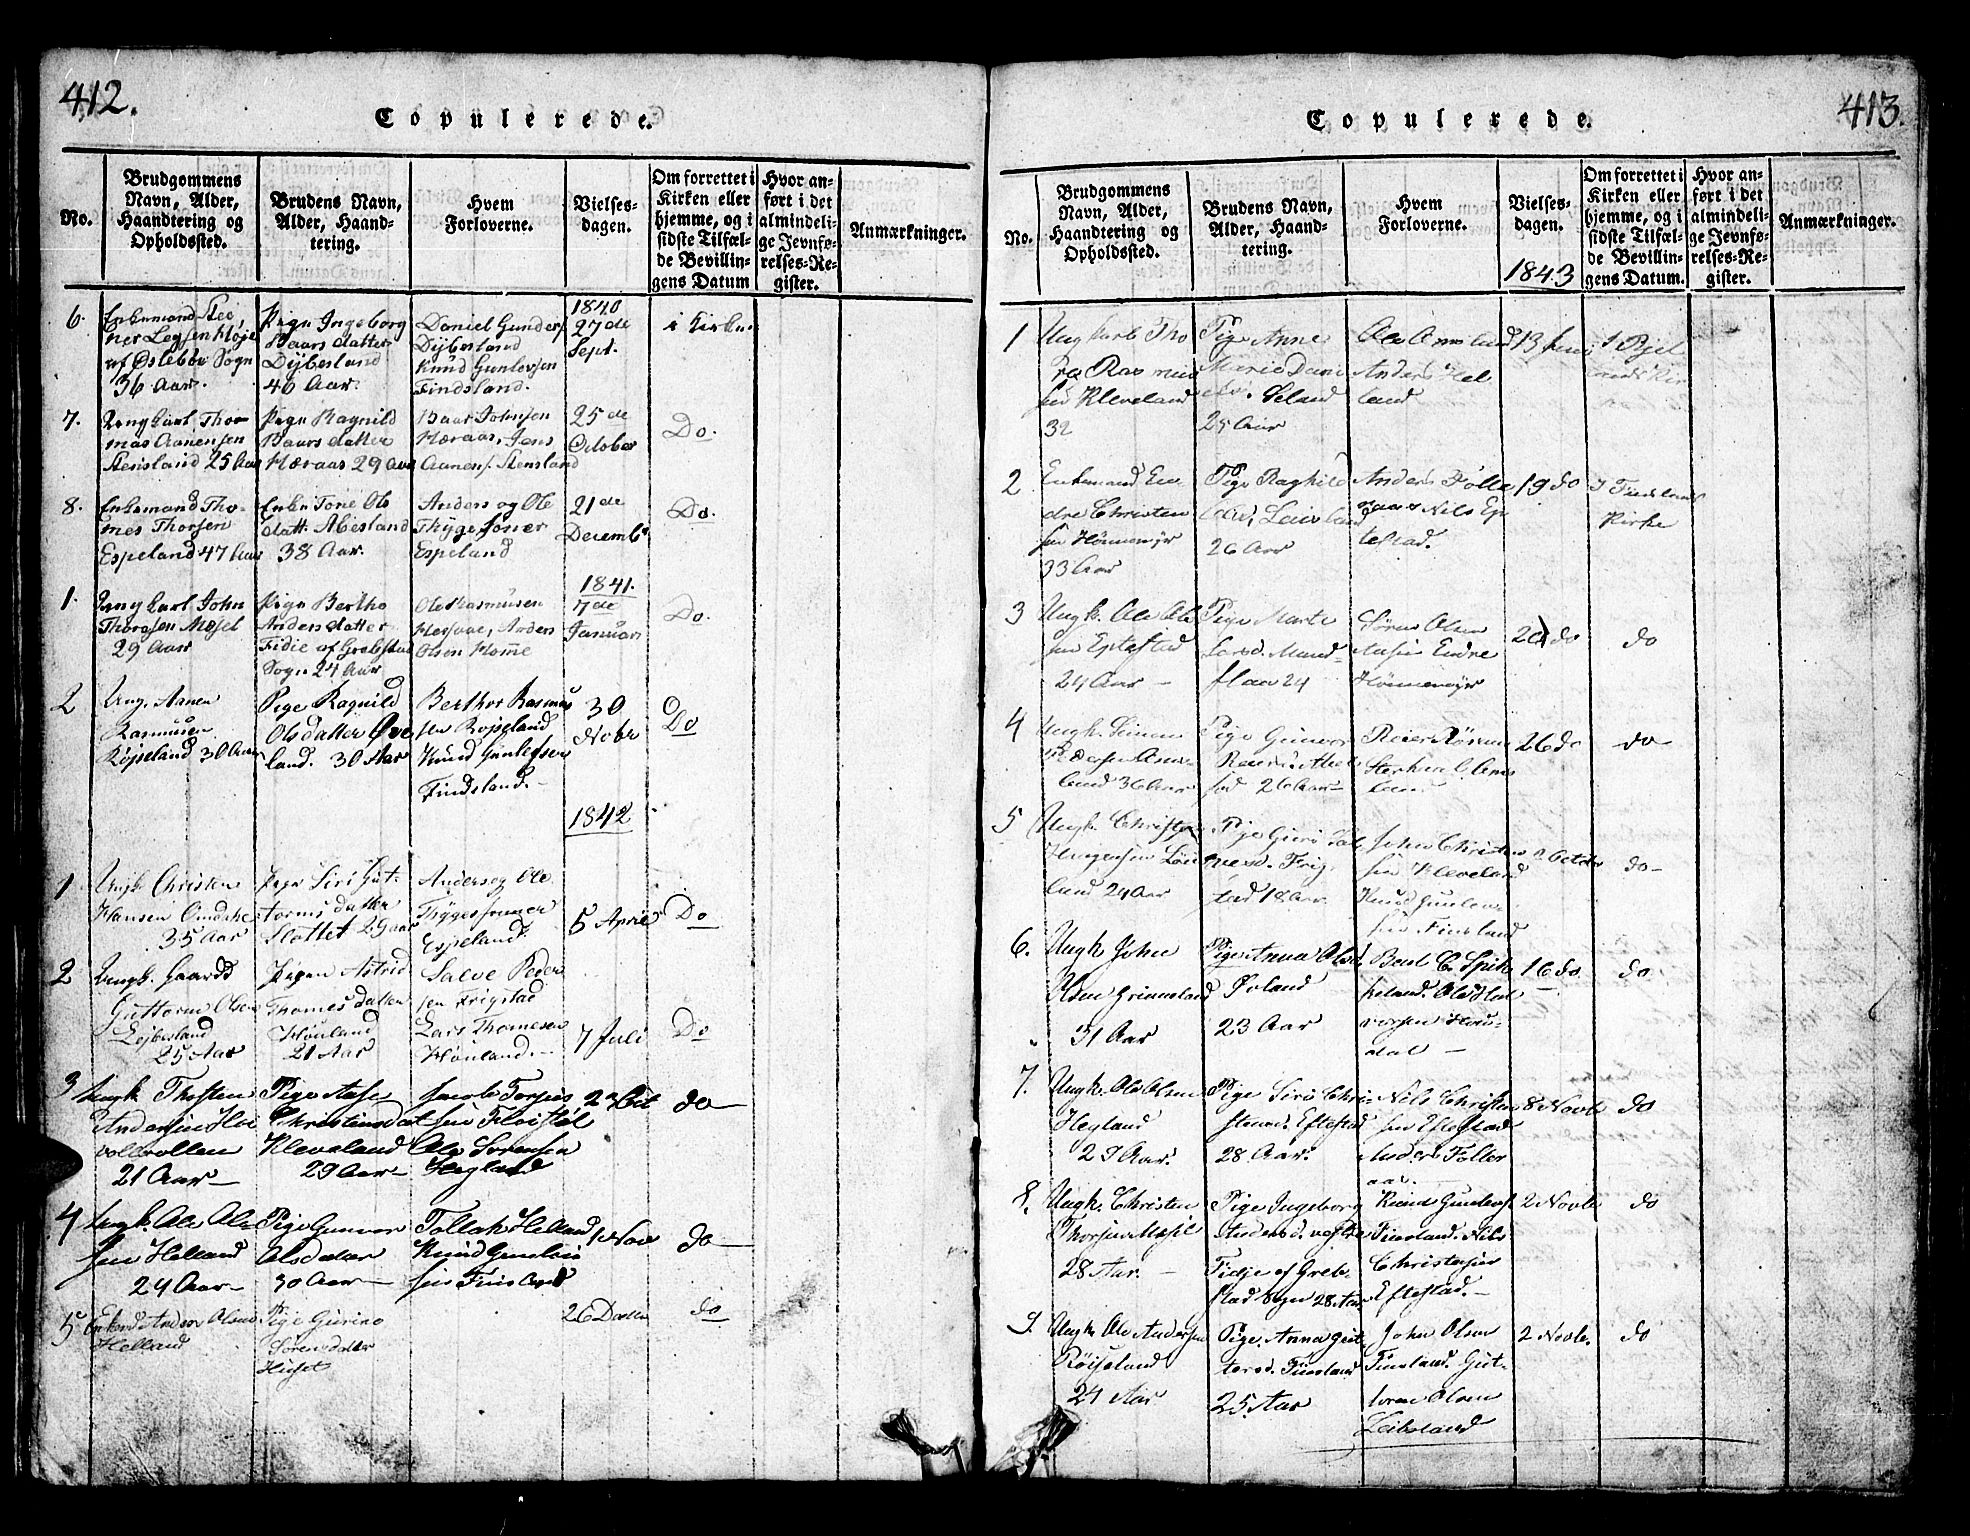 412.
Copulerede.
No.
Brudgommens
Navn, Alder,
Haandtering og
Opholdssted.
Brudens Navn,
Alder, Haand-
tering.
Hvem
Forloverne.
Vielses-
dagen.
Om forrettet i
Kirken eller
hjemme, og i
sidste Tilfæl-
de Bevillin-
gens Datum
Hvor an-
ført i det
almindeli-
ge Jevnfø-
relses-Re-
gister.
Anmærkninger.
6.
Enkemand
36 Aar.
Pige Ingeborg
Baars datter
Dybesland
40 Aar.
Daniel Gunders
Dybesland
Knud Gunlevsen
Findsland.
1840
27de
Sept.
i Kirken
7.
Ung Karl Tho-
mas Aanensen
Stensland 25 Aar
Pige Ragnild
Baars datter
Høraas 29 Aar
Baar Johnsen
Høraas, Jens
Aanens. Stensland
25de
October
Do.
8.
Enkemand Tho-
mes Thorsen
Espeland 47 Aar
Enke Tone Ols
datt. Abesland
38 Aar.
Anders og Ole
Thygesøner
Espeland
21de
Decembr
Do.
1.
Ung Karl John
Thorsen Mosel
29 Aar
Pige Bertho
Anders datter
Fidie af Grebstad
Sogn 24 Aar
Ole Rasmusen
Anders
Olsen Home
1841.
7de
Januari
Do.
2
Ung. Aanen
Rasmusen
Røjseland 30 Aar
Pige Ragnild
Olsdatter Øve
land. 30 Aar
Berthor Rasmus
sen Rojseland
Knud Gunlefsen
Findsland.-
30
Nobr
Do
1842
1
Ungk Christen
Hansen Omdahl
35 Aar
Pige Siri Gut-
torms datter
Slottet 29 aar
Anders og Ole
Thygesønner
Espeland
5 April
Do
2
Ungk. Gaardb
Guttorm Olsen
Lojbesland
25 Aar
Pigen Astrid
Thomes datter
Høuland
21 Aar
Salve Peder
sen Frigstad
Lars Thomesen
Høuland.-
7 Juli
Do
3
Ungk Thosten
Andersen
21 Aar-
Pige Aase
Christensdat
Kleveland
29 Aar-
Jacob Torjus
sen Floistøl
Ole Sørensen
Hegland
2 Oct
do-
4
Ungk. Ole Ole
sen Helland
24 Aar-
Pige Gunvor
Olsdater
30 Aar-
Tollak Helland
Knud Gunlev
sen Finsland
1 Nov
do-
5
Enkmd Anders Olsen
Helland
Pige Gurine
Sørensdatter
Huset
26 Decbr
do
413.
Copulerede.
No.
Brudgommens
Navn, Alder,
Haandtering og
Opholdssted.
Brudens Navn,
Alder, Haand-
tering.
Hvem
Forloverne.
Vielses-
dagen.
1843
Om forrettet i
Kirken eller
hjemme, og i
sidste Tilfæl-
de Bevillin-
gens Datum.
Hvor an-
ført i det
almindeli-
ge Jevnfø-
relses-Re-
gister.
Anmærkninger.
1
Ung karl Tho
sen Kleveland
32
Pige Anne
Marie Dani
elsd. Eeland
25 Aar
Anders Hel
land
13 Juni
2
Enkemand En
dre Christen
sen Hønnemyr
33 Aar
Pige Raghild
26 Aar
Anders Foller
aas Nils Ep
testad.
19 do
I Finsland
Kirke
3
Ungk. Ole Ole
sen Eptestad
24 Aar -
Pige Marte
Larsd. Mand-
flaa 24
Søren Olsen
Endre
Hønnemyr
20 do
do
4
Ungk. Simen
36 Aar
Pige Gunvor
26 Aar-
26 do
do
5
Ungk. Christen
24 Aar
Pige Guro
Frig-
stad 18 Aar
John Christen
sen Kleveland
Knud Gunlev
sen Finsland
October
do-
6.
Ungk John
Olsen Grimsland
31 Aar
Pige Anna Olsd.
Øvland
23 Aar
Bent C. Spik
keland. Ole Hal
vorsen Hou-
dal -
16 do
do
7.
Ungk. Ole Olsen
Hegland
29 Aar.
Pige Siri Chri-
stensd. Eftestad
28. Aar.
Nils Christen
sen Eftestad
Anders Foller
aas.
8 Novbr
do
8.
Ungk. Christen
Thorsen Mosel
28 Aar. -
Pige Ingeborg
Andersd. vestre
Fidje af Greb-
stad Sogn 28 Aar
Knud Gunlevs.
Finsland. Nils
Christensen
Eftestad. -
2 Novbr
do
9.
Ungk Ole Andersen
Røiseland
24 Aar
Pige Anna Gut-
tormsd. Finsland
25 Aar
John Olsen
Finsland. Gut-
torm Olsen
Leibsland
2 Novbr.
do